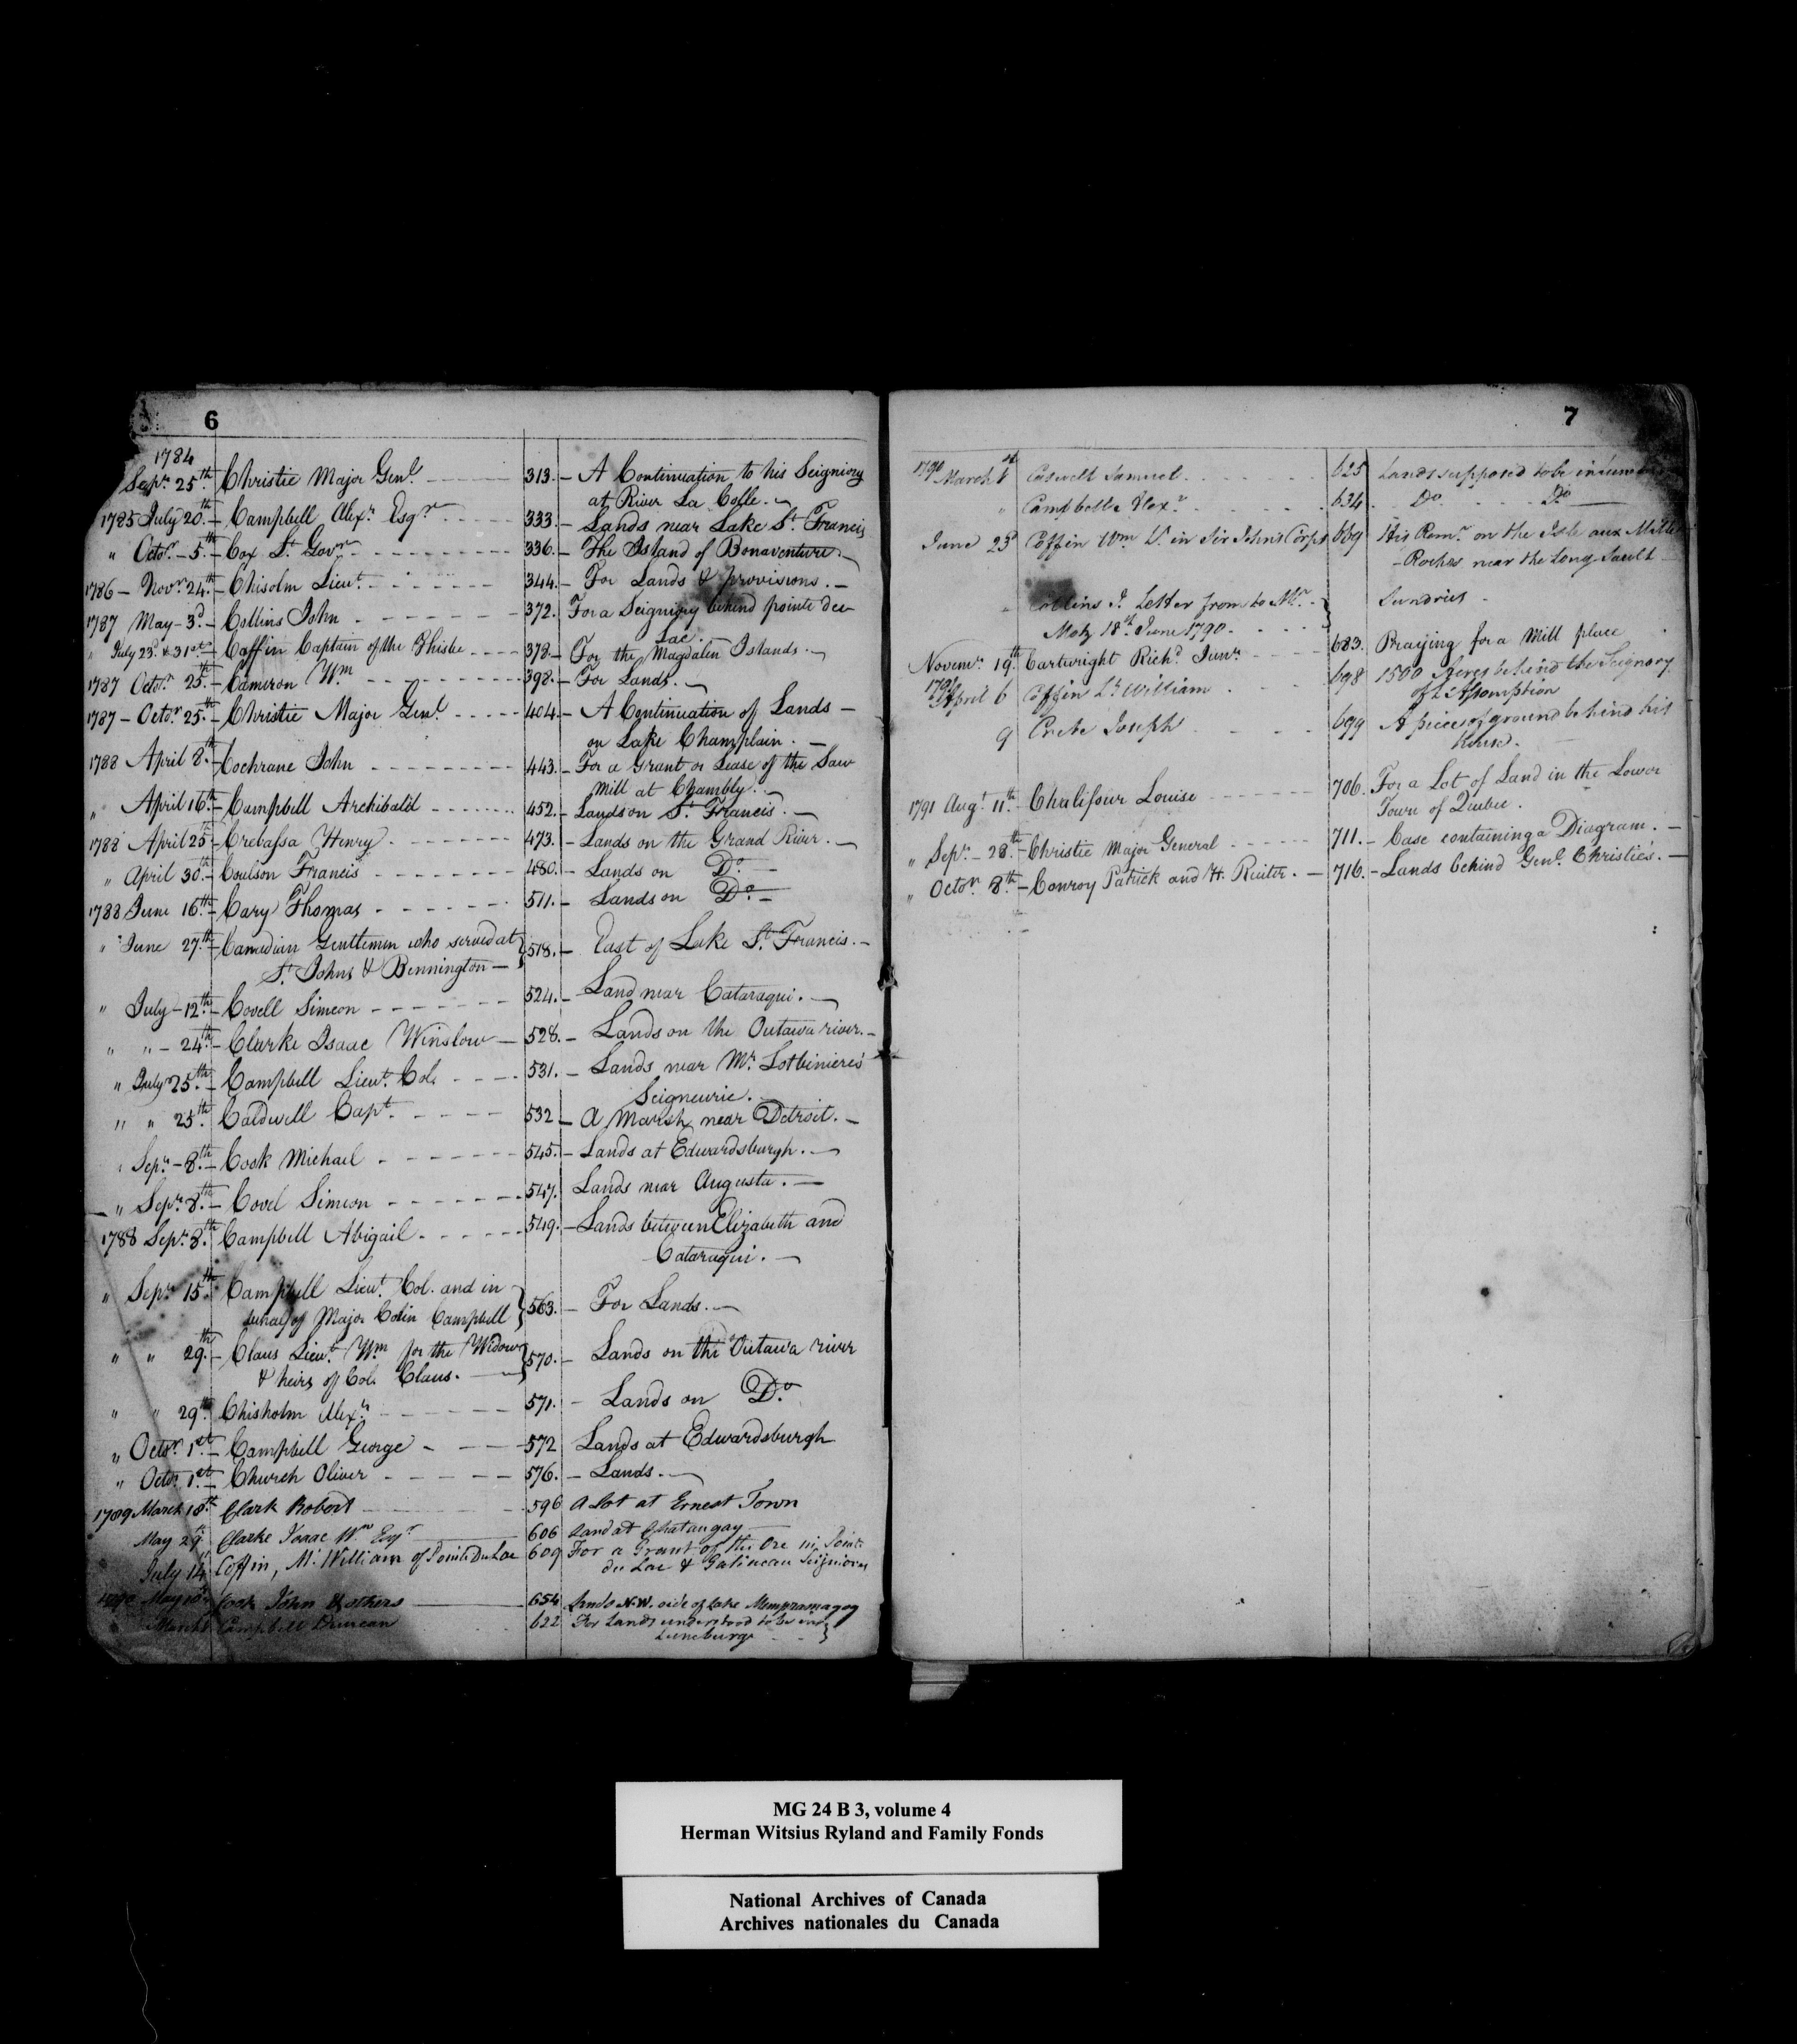 6
1784
Sepr. 25th. Christie Major Genl. 313. A Continuation to his Seigniory
at River La Colle.
1785 July 20th. Campbell Alexr. Esqr. 333. Lands near Lake St. Francis
" Octor. 5th. Cox Lt. Govr. 336. The Island of Bonaventure.
1786 Novr. 24th. Chisolm Lieut. 344. For Lands & provisions.
1787 May 3d. Collins John 372. For a Seigniory behind pointe du
Lac.
" July 23d. & 31st. Caffin Captain of the Thisbe 378. For the Magdalen Islands.
1787 Octor. 25th. Cameron Wm. 398. For Lands.
1787 Octor. 25th. Christie Major Genl. 404. A Continuation of Lands
on Lake Champlain.
1788 April 8th. Cochrane John 443. For a Grant or Lease of the Saw
Mill at Chambly.
" April 16th. Campbell Archibald 452. Lands on St. Francis.
1788 April 25th Crebassa Henry 473. Lands on the Grand River.
" April 30th. Coulson Francis 480. Lands on Do.
1788 June 16th. Cary Thomas 511. Lands on Do.
" June 27th. Canadian Gentlemen who served at
St. Johns & Bennington 518. East of Lake St. Francis.
" July 12th. Covell Simeon 524. Land near Cataraqui.
" " 24th. Clarke Isaac Winslow 528. Lands on the Outawa river.
" July 25th. Campbell Lieut. Col. 531. Lands near Mr. Lotbinieres
Seigneurie.
" " 25th. Caldwell Capt. 532 A Marsh near Detroit.
" Sepr. 8th. Cook Michael 545. Lands at Edwardsburgh.
" Sepr. 8th. Covel Simeon 547. Lands near Augusta.
1788 Sepr. 8th. Campbell Abigail 549. Lands between Elizabeth and
Cataraqui.
" Sepr. 15th Campbell Lieut. Col. and in
behalf of Major Colin Campbell 563. For Lands.
" " 29th. Claus Lieut. Wm. for the Widow
& heirs of Col. Claus. 570. Lands on the Outawa river
" " 29th. Chisholm Alexr. 571. Lands on Do.
" Octor. 1st. Campbell George 572 Lands at Edwardsburgh
" Octor. 1st. Church Oliver 576. Lands.
1789 March 18th. Clark Robert 596 A Lot at Ernest Town
May 29. Clarke Isaac Wm. Esqr. 606 Land at Chataugay
July 14 Coffin, Mr. William of Pointe Du Lac 609 For a Grant of the Ore in Pointe
du Lac & Gatineau Seigniories
1790 May Cook John & others 654 Lands N.W. side of Lake Mempramagog
March Campbell Duncan 622 For Lands understood to be in
Luneburgh
7
1790 March 1st Caswell Samuel 625 Lands supposed to be in
" Campbell Alexr. 634 Do Do
June 23d Coffin Wm. in Sir Johns Corps 669 His on the Isle aux Mille
Roches near the Long Sault
" Collins J. Letter from to Mr. Sundries
Motz 18th. June 1790.
Novemr. 19th Cartwright Richd. Junr. 683. Praying for a Mill place
1791 April 6 Coffin Lt. William 698 1500 Acres behind the Seignory
of L'Assomption
9 Crete Joseph 699 A piece of ground behind his
House.
1791 Augt. 11th. Chalifour Louise 706. For a Lot of Land in the Lower
Town of Quebec.
" Sepr. 28th. Christie Major General 711. Case containing a Diagram.
" Octor. 8th. Conroy Patrick and H. Ruiter. 716. Lands behind Genl. Christie's.
MG 24 B 3, volume 4
Herman Witsius Ryland and Family Fonds
National Archives of Canada
Archives nationales du Canada